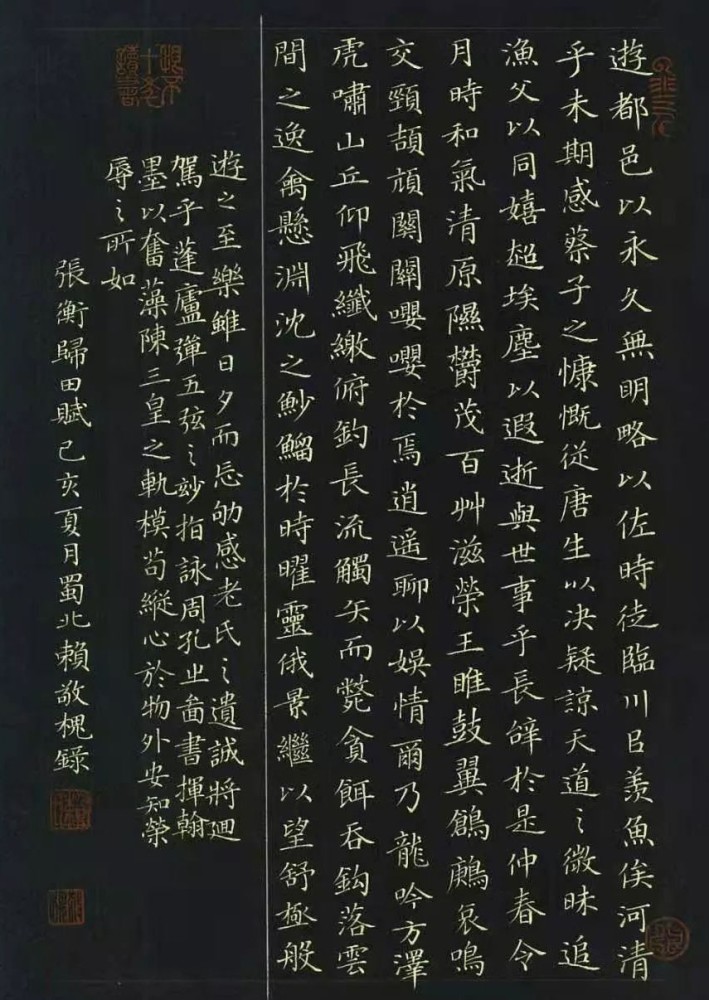 遊都邑以永久無明略以佐時徒臨川㠯羨魚俟河清
乎未期感蔡子之慷慨從唐生以决疑諒天道之微昧追
漁父以同嬉超埃塵以遐逝與世事乎長辭於是仲春令
月時和氣清原隰鬱茂百艸滋榮王雎鼓翼鶬鶊哀鳴
交頸頡頏關關嚶嚶於焉逍遥聊以娱情爾乃龍吟方澤
虎嘯山丘仰飛纖繳俯釣長流觸矢而斃貪餌吞鈎落雲
間之逸禽懸淵沈之魦鰡於時曜靈俄景繼以望舒極般
遊之至樂雖日夕而忘劬感老氏之遺誡將迴
駕乎蓬廬彈五弦之妙指詠周孔之啚書揮翰
墨以奮藻陳三皇之軌模苟縱心於物外安知榮
辱之所如
張衡歸田賦己亥夏月蜀北賴敬槐錄